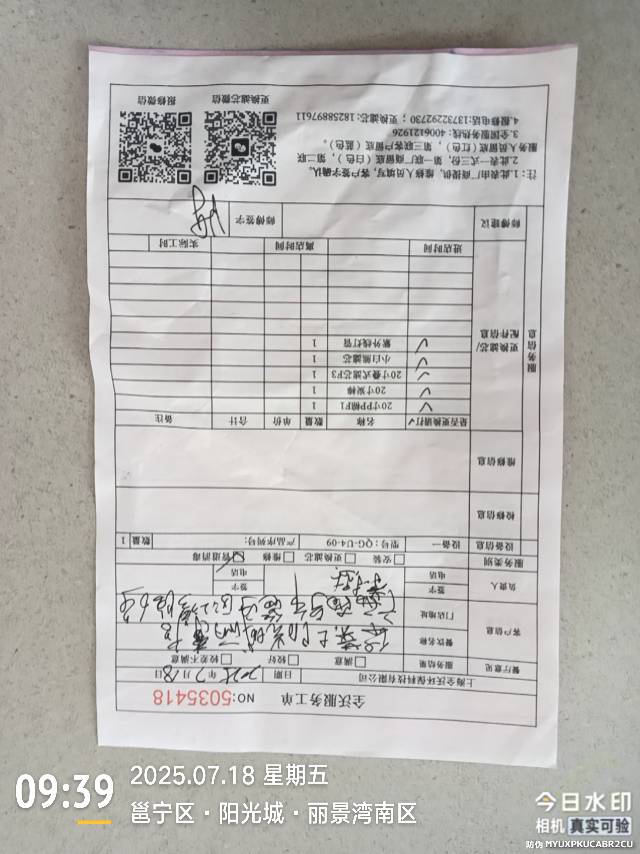 全沃服务工单
NO:5035418
上海全沃环保科技有限公司
日期 2025年7月18日
餐厅意见
服务结果
满意
较好
较差不满意
客户信息
餐饮名称
门店地址
负责人
签字
电话
签字
电话
服务类别
安装
更换滤芯
维修
管道消毒
设备信息
设备一
型号:QG-U4-09
产品序列号:
数量
1
检修信息
维修信息
服务信息
更换滤芯/配件信息
是否更换请打✓ 名称 数量 单价 合计 备注
✓ 20寸PP棉F1 1
✓ 20寸炭棒 1
✓ 20寸叠式滤芯F3 1
✓ 小白熊滤芯 1
✓ 紫外线灯管 1
进店时间
离店时间
实际工时
师傅建议
师傅签字
注:1.此表由厂商提供,维修人员填写,客户签字确认。
2.此表一式三份,第一联厂商留底(白色),第二联
服务人员留底(红色),第三联客户留底(蓝色)。
3.全国服务热线:4006121926
4.报修电话:13732292730;更换滤芯:18258897611
更换滤芯微信
报修微信
09:39
2025.07.18 星期五
邕宁区·阳光城·丽景湾南区
今日水印
相机 真实可验
防伪 MYUXPKUCABR2CU